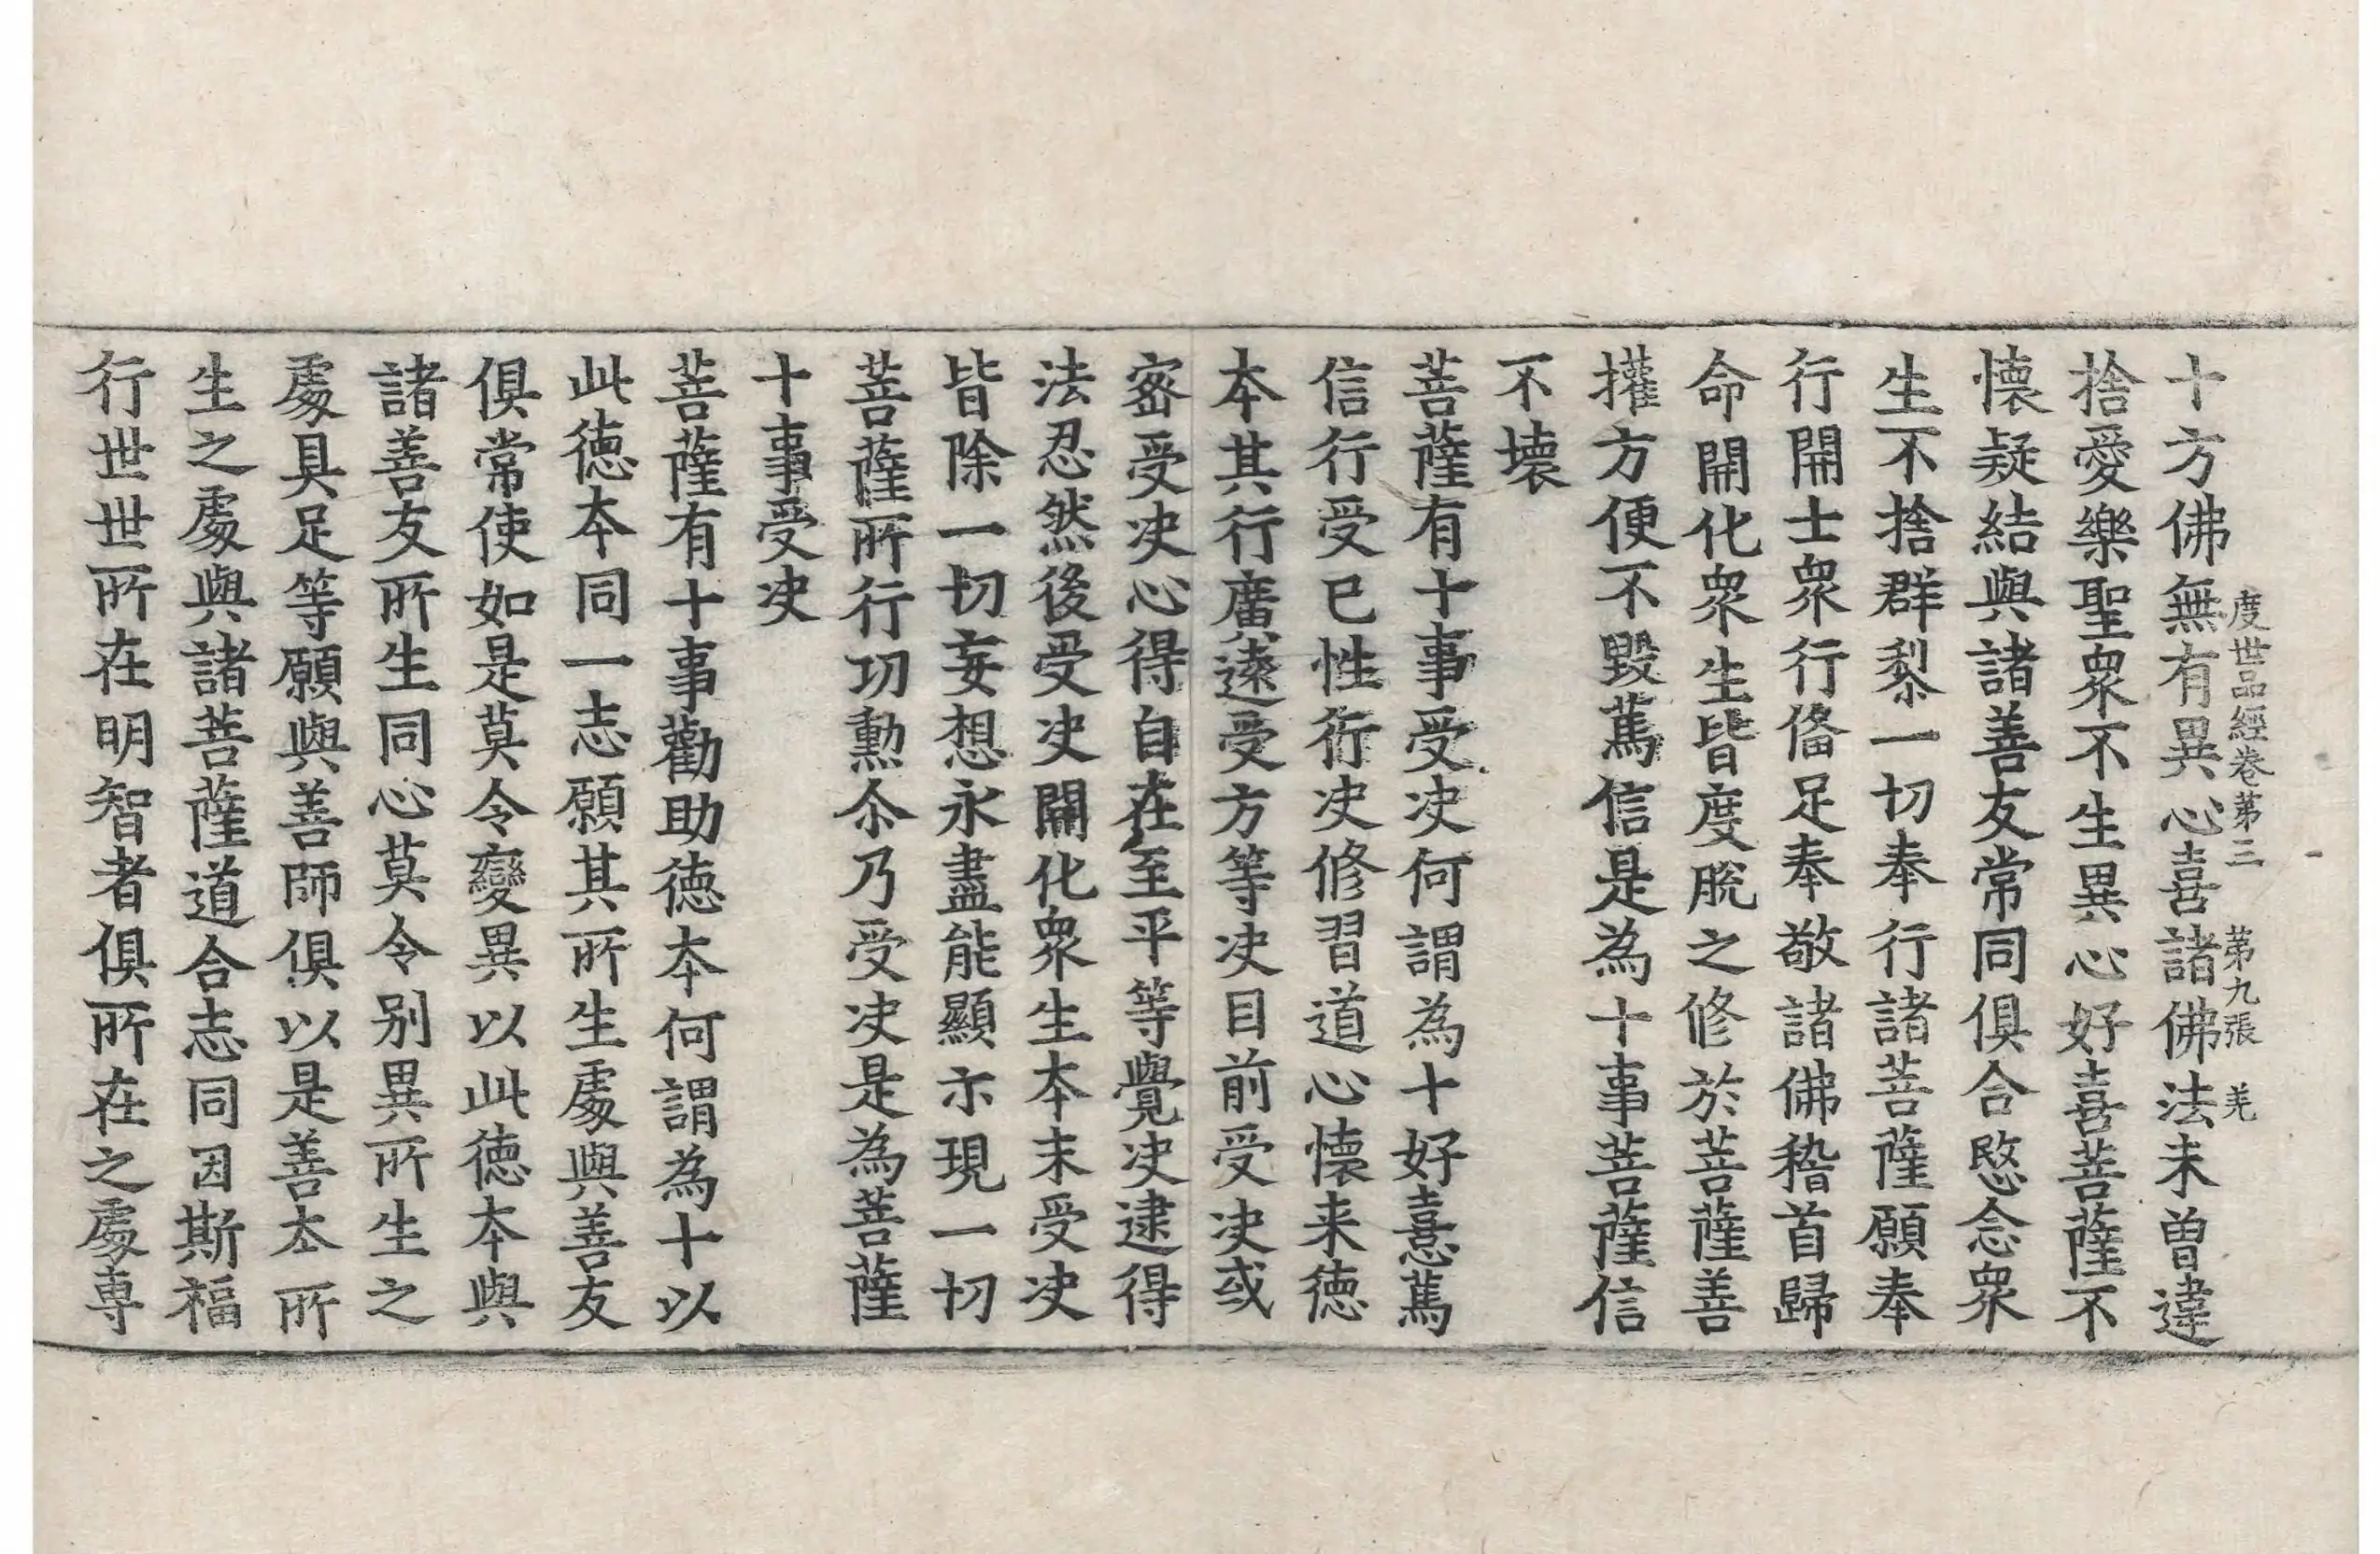 度世品經卷第三　第九張　羌
十方佛無有異心喜諸佛法未曾違
捨愛樂聖衆不生異心好喜菩薩不
懷疑結與諸善友常同俱合愍念衆
生不捨群黎一切奉行諸菩薩願奉
行開士衆行俻足奉敬諸佛稽首歸
命開化衆生皆度脫之修於菩薩善
攉方便不毀篤信是為十事菩薩信
不壞
菩薩有十事受决何謂為十好憙篤
信行受已性行决修習道心懷来德
本其行廣遠受方等决目前受决或
密受决心得自在至平等覺决逮得
法忍然後受决開化衆生本末受决
皆除一切妄想永盡能顯示現一切
菩薩所行功勲尒乃受决是為菩薩
十事受决
菩薩有十事勸助德本何謂為十以
此德本同一志願其所生處與善友
俱常使如是莫令變異以此德本與
諸善友所生同心莫令別異所生之
處具足等願與善師俱以是善本所
生之處與諸菩薩道合志同因斯福
行世世所在明智者俱所在之處専